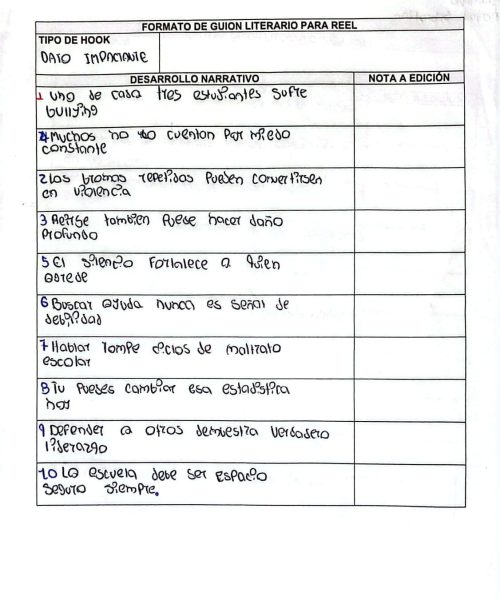 FORMATO DE GUION LITERARIO PARA REEL
TIPO DE HOOK
DATO IMPACTANTE
DESARROLLO NARRATIVO NOTA A EDICIÓN
1 Uno de cada tres estudiantes sufre
bullying
4 Muchos no lo cuentan por miedo
constante
2 Las bromas repetidas pueden convertirsen
en violencia
3 Reirse tambien puede hacer daño
profundo
5 El silencio fortalece a quien
agrede
6 Buscar ayuda nunca es señal de
debilidad
7 Hablar rompe ciclos de maltrato
escolar
8 Tu puedes cambiar esa estadistica
hoy
9 Defender a otros demuestra verdadero
liderazgo
10 La escuela debe ser espacio
seguro siempre.